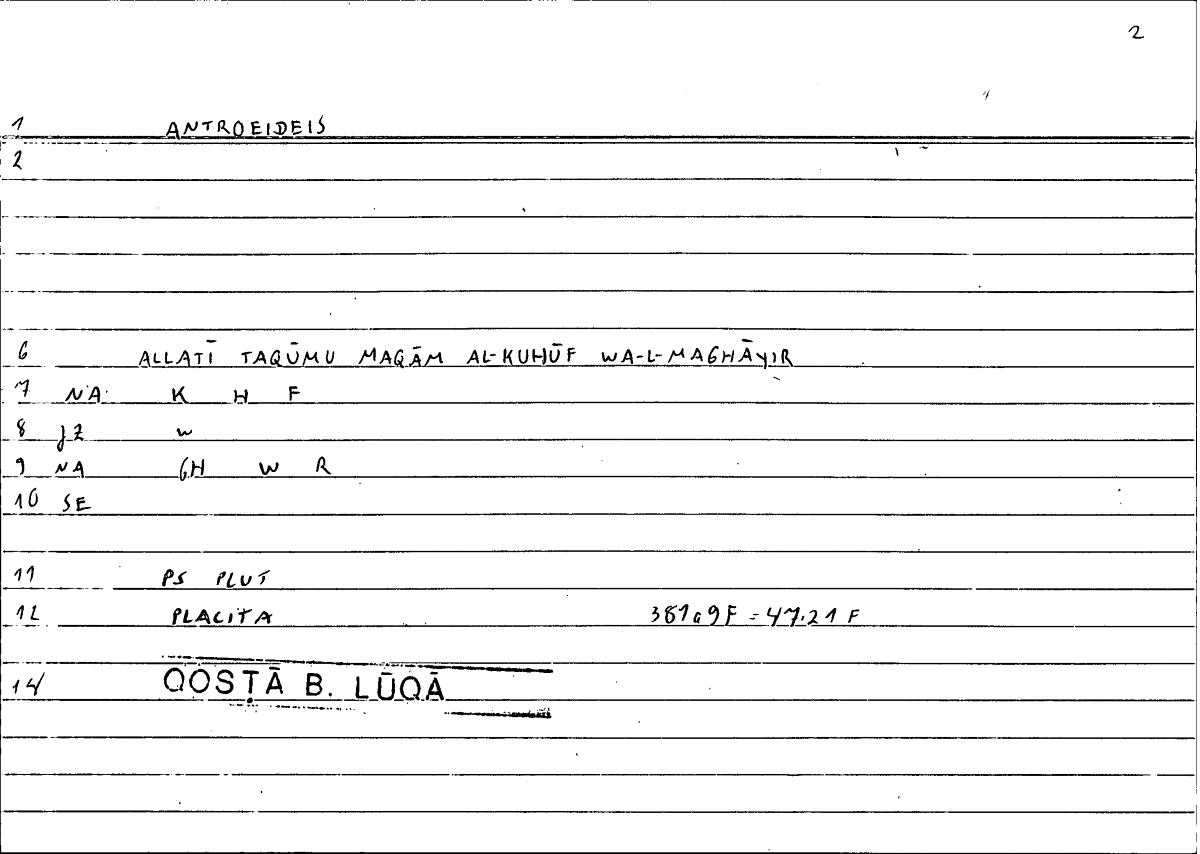 2
1 ANTROEIDEIS
2
6 ALLATĪ TAQŪMU MAQĀM AL-KUHŪF WA-L-MAGHĀYIR
7 NA K H F
8 JZ W
9 NA GH W R
10 SE
11 PS PLUT
12 PLACITA 381a9F = 47.21 F
14 QOSṬĀ B. LŪQĀ